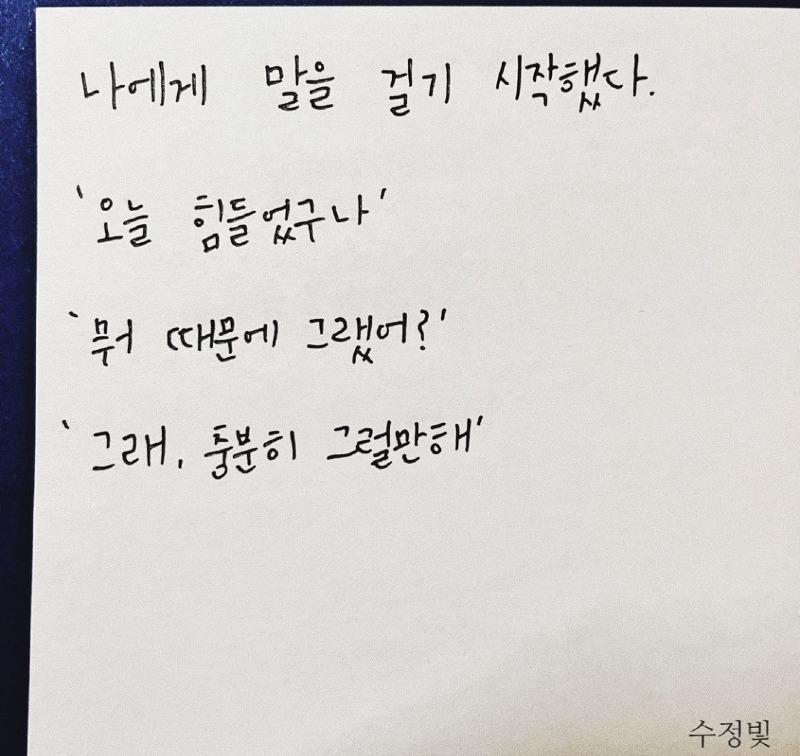 나에게 말을 걸기 시작했다.
'오늘 힘들었구나'
'뭐 때문에 그랬어?'
'그래, 충분히 그럴만해'
수정빛